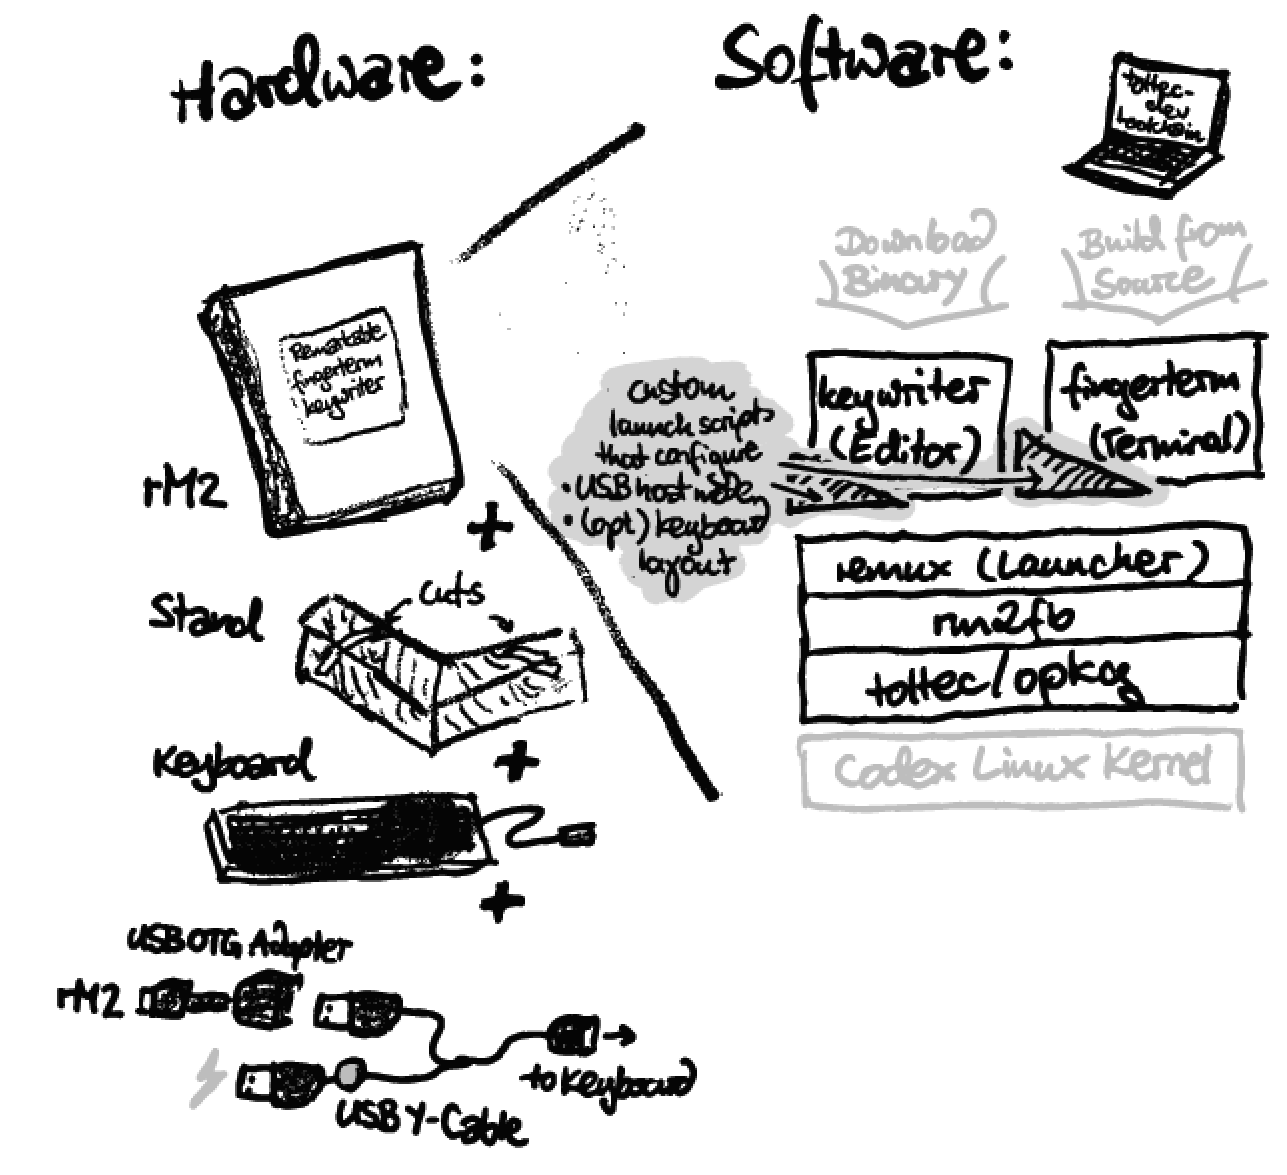 Hardware:
Software:
toltec-
dev
toolchain
Download
Binary
Build from
Source
Remarkable
fingerterm
keywriter
rM2
custom
launch scripts
that configure
• USB host mode,
• (opt) keyboard
layout
keywriter
(Editor)
fingerterm
(Terminal)
+
remux (Launcher)
rm2fb
toltec/opkg
Codex Linux Kernel
Stand
cuts
+
Keyboard
+
USB OTG Adapter
rM2
to Keyboard
USB Y-Cable